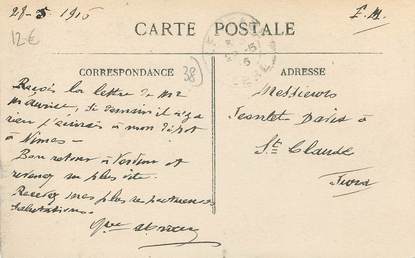 28-5 1915
F. M.
12 €
CARTE POSTALE
38)
CORRESPONDANCE
ADRESSE
Reçois la lettre de Mr
Maurice, si demain il n'y a
rien j'écrirais à mon Dépôt
à Nîmes -
Bon retour à Verdun et
revenez au plus vite.
Recevez mes plus respectueuses
salutations.
Messieurs
Jeantet David à
St Claude
Jura